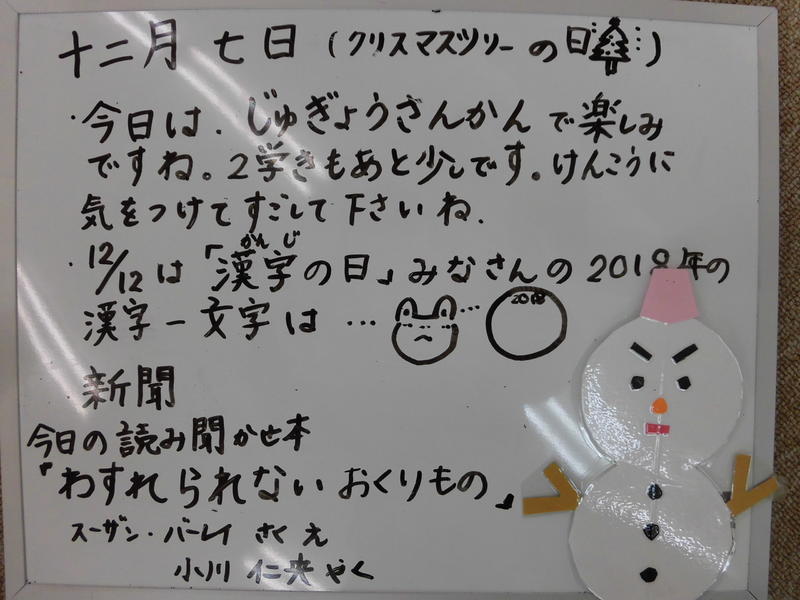 十二月 七日 (クリスマスツリーの日)
・今日は、じゅぎょうさんかんで楽しみ
ですね。2学きもあと少しです。けんこうに
気をつけてすごして下さいね.
かんじ
・12/12は「漢字の日」みなさんの2018年の
漢字一文字は… …
2018
新聞
今日の読み聞かせ本
『わすれられないおくりもの』
スーザン・バーレイ さく え
小川 仁央 やく